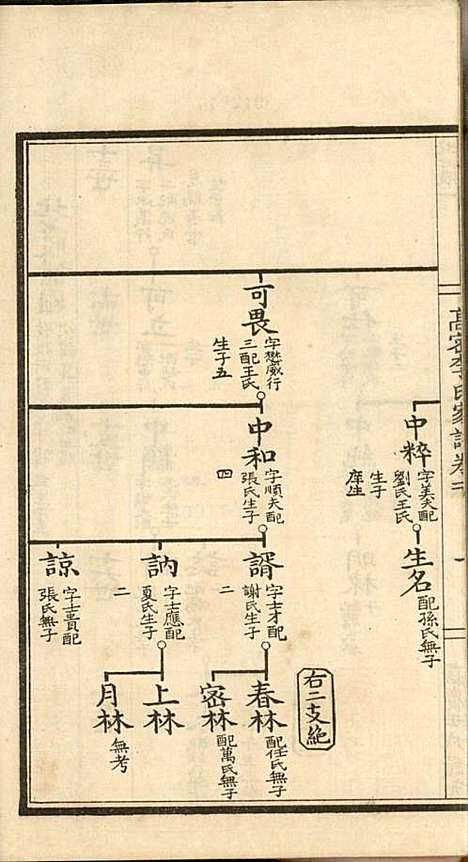 高密李氏家譜卷
中粹
字美夫配
劉氏王氏
生子
庠生
生名
配孫氏無子
可畏
字懋威行
三配王氏
生子五
中和
字順夫配
張氏生子
四
諝
字士才配
謝氏生子
二
春林
配任氏無子
密林
配萬氏無子
訥
字士應配
夏氏生子
二
上林
月林
無考
諒
字士賁配
張氏無子
右二支絶